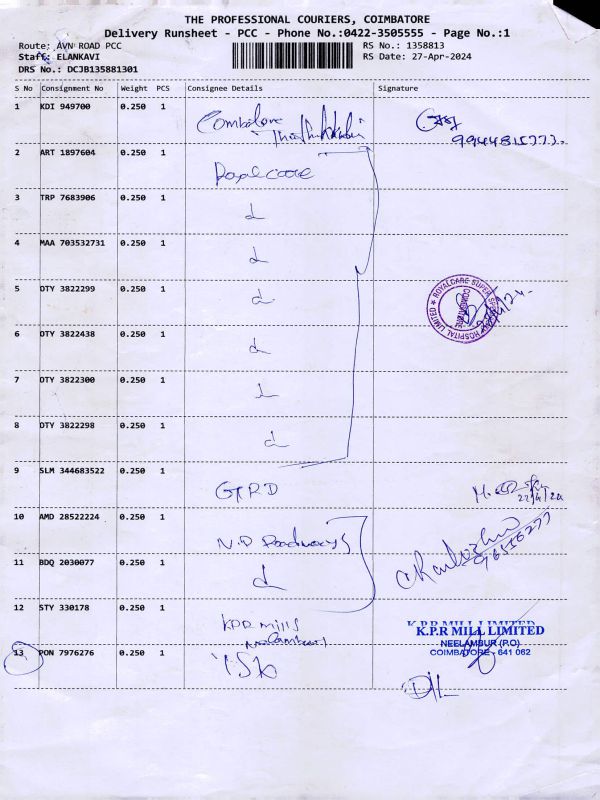 THE PROFESSIONAL COURIERS, COIMBATORE
Delivery Runsheet - PCC - Phone No.:0422-3505555 - Page No.:1
Route: AVN ROAD PCC
RS No.: 1358813
Staff: ELANKAVI
RS Date: 27-Apr-2024
DRS No.: DCJB135881301
S No Consignment No Weight PCS Consignee Details Signature
1 KDI 949700 0.250 1
2 ART 1897604 0.250 1
3 TRP 7683906 0.250 1
4 MAA 703532731 0.250 1
5 DTY 3822299 0.250 1
ROYALCARE SUPER SPECIALITY HOSPITAL LIMITED
COIMBATORE
6 DTY 3822438 0.250 1
7 DTY 3822300 0.250 1
8 DTY 3822298 0.250 1
9 SLM 344683522 0.250 1 GTRD
10 AMD 28522224 0.250 1 N.D Roadways
11 BDQ 2030077 0.250 1
12 STY 330178 0.250 1 KPR mills
K.P.R MILL LIMITED
K.P.R MILL LIMITED
NEELAMBUR (P.O)
COIMBATORE - 641 062
13 PON 7976276 0.250 1